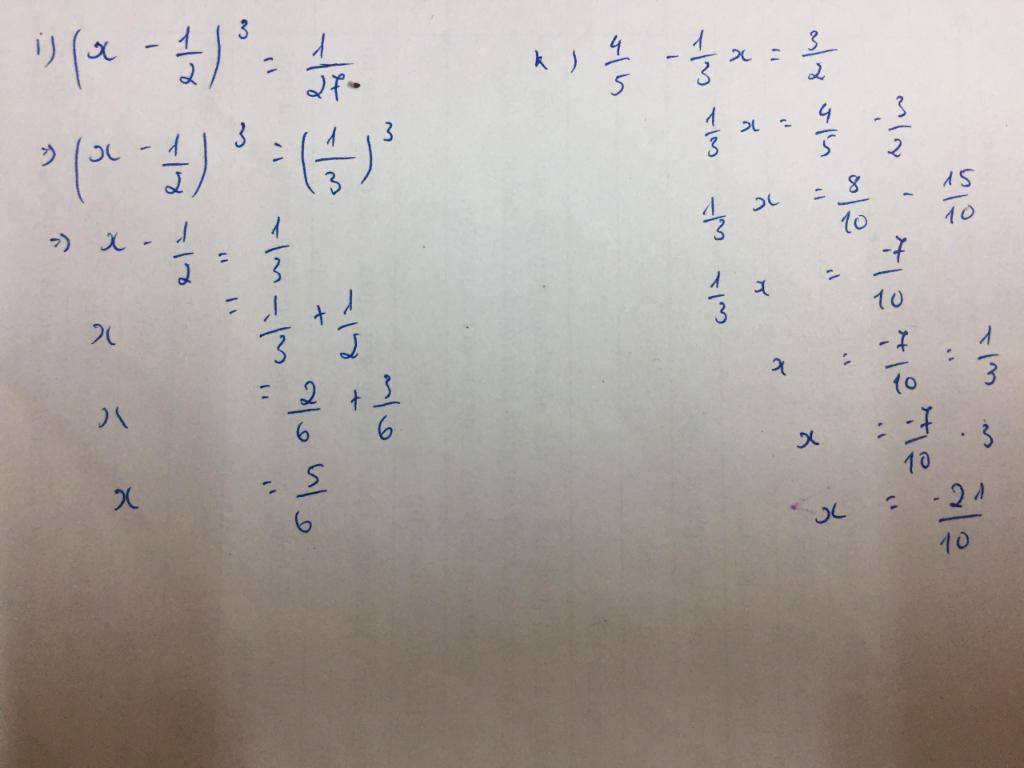 i) (x - 1/2)^3 = 1/27
=> (x - 1/2)^3 = (1/3)^3
=> x - 1/2 = 1/3
x = 1/3 + 1/2
x = 2/6 + 3/6
x = 5/6
k) 4/5 - 1/3 x = 3/2
1/3 x = 4/5 - 3/2
1/3 x = 8/10 - 15/10
1/3 x = -7/10
x = -7/10 : 1/3
x = -7/10 . 3
x = -21/10